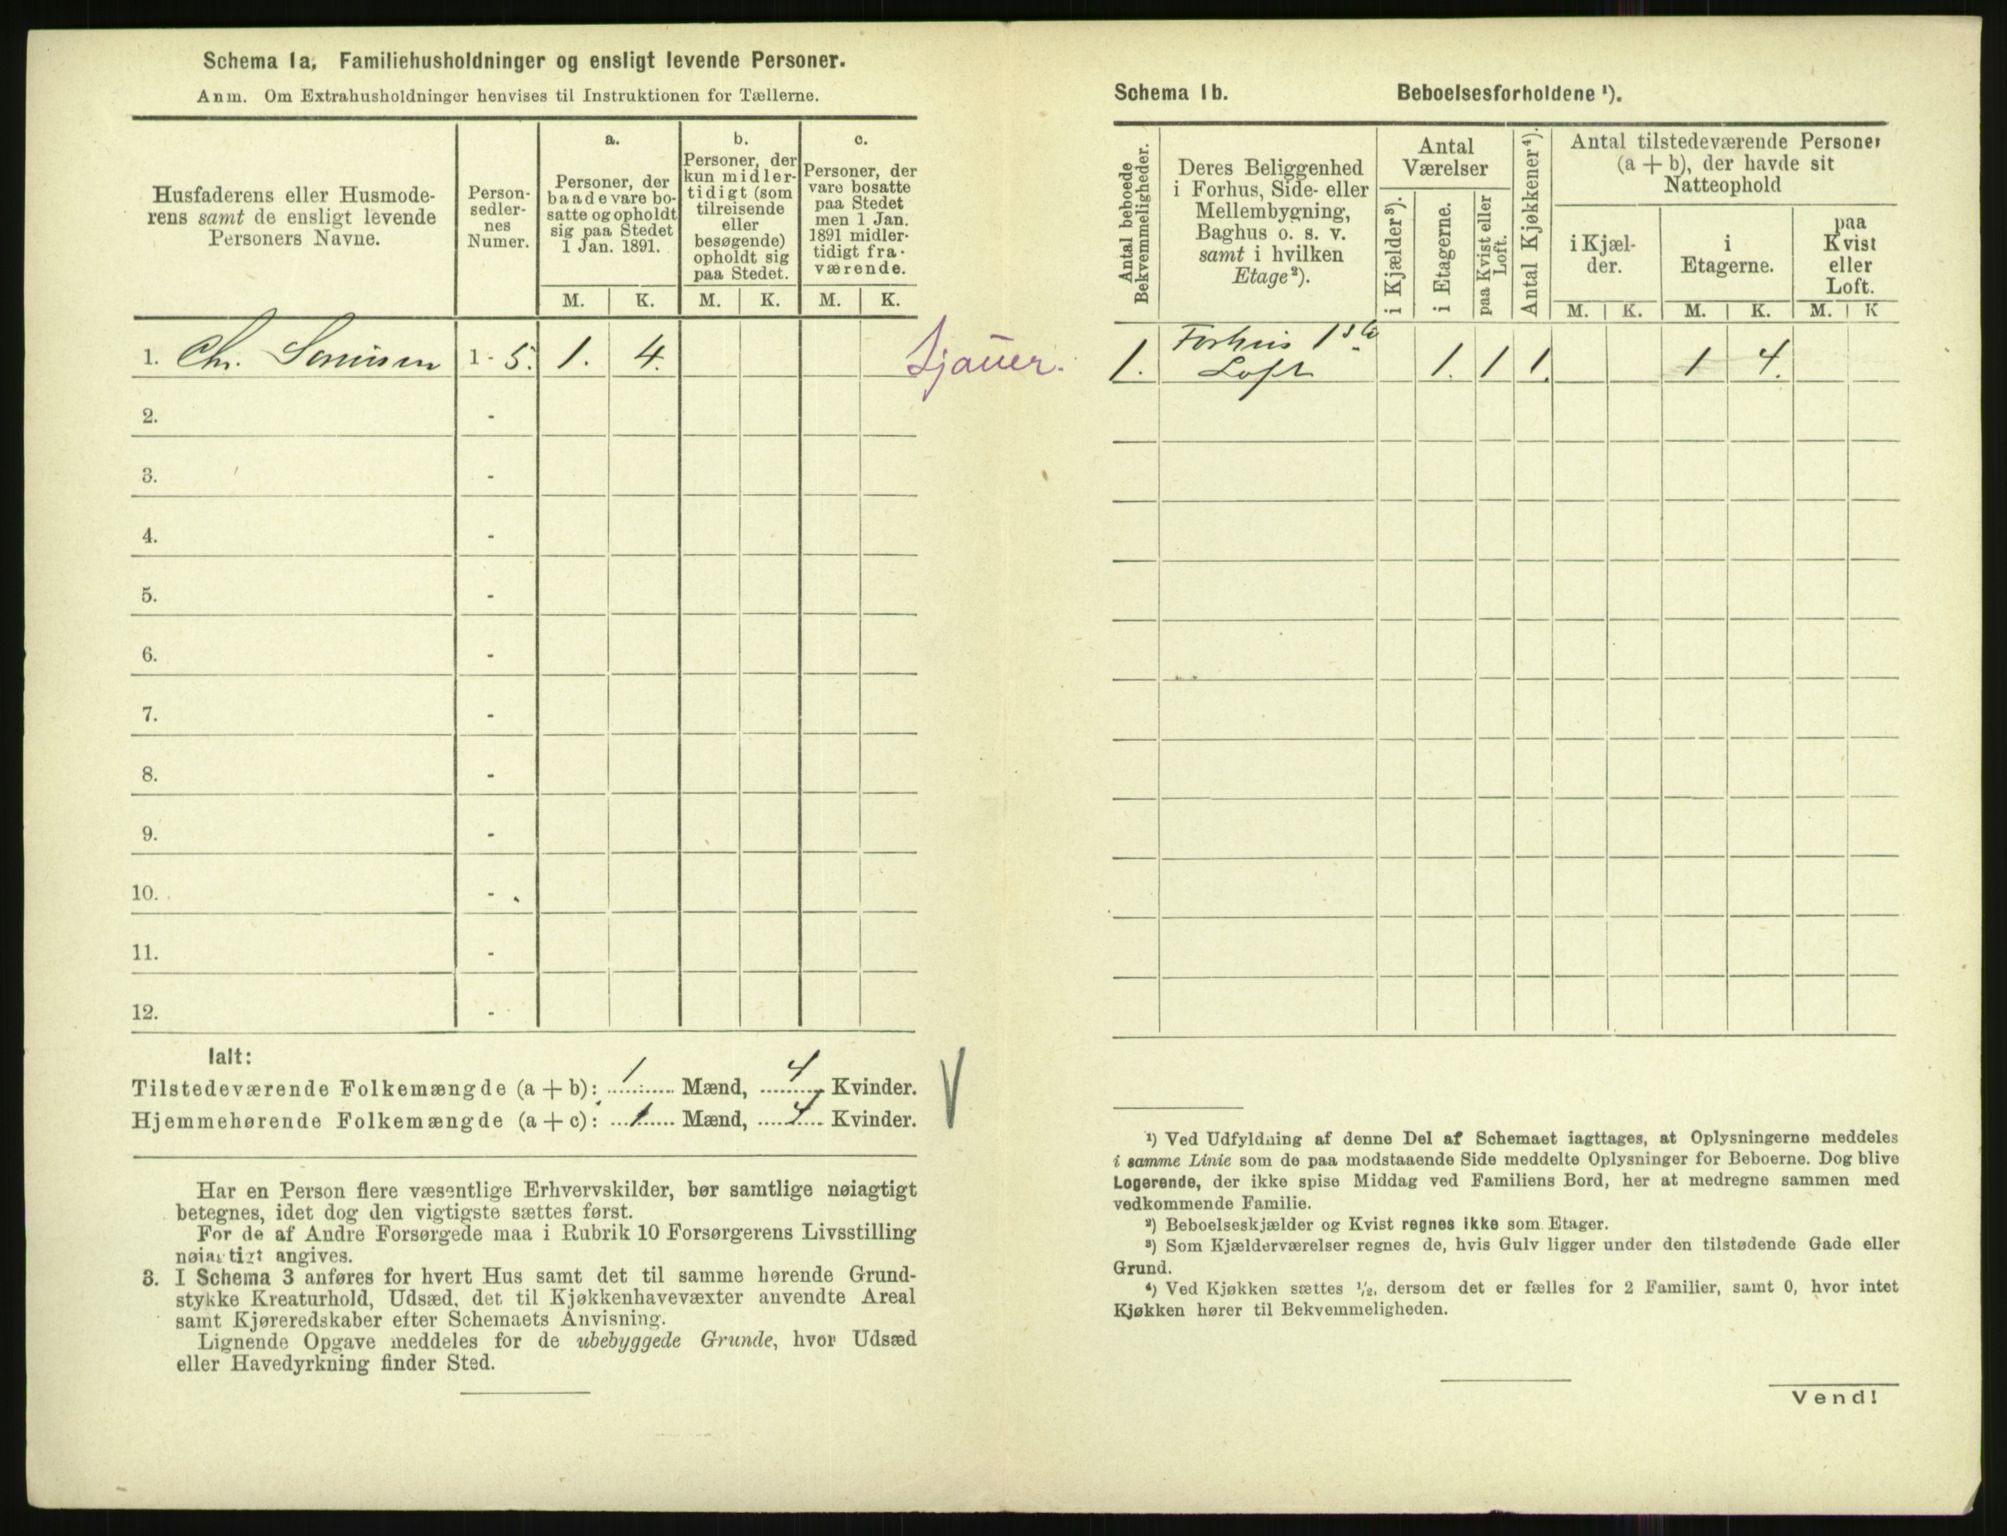 Schema 1a, Familiehusholdninger og ensligt levende Personer.
Anm. Om Extrahusholdninger henvises til Instruktionen for Tællerne.
Husfaderens eller Husmode-
rens samt de ensligt levende
Personers Navne.
Person-
sedler-
nes
Numer.
a.
Personer, der
baade vare bo-
satte og opholdt
sig paa Stedet
1 Jan. 1891.
b.
Personer, der
kun midler-
tidigt (som
tilreisende
eller
besøgende)
opholdt sig
paa Stedet.
c.
Personer, der
vare bosatte
paa Stedet
men 1 Jan.
1891 midler-
tidigt fra-
værende.
M. K. M. K. M. K.
1. Chr. 1 - 5. 1. 4. Sjauer.
2. -
3. -
4. -
5. -
6. -
7. -
8. -
9. -
10. -
11. -
12. -
Ialt:
Tilstedeværende Folkemængde (a + b): 1 Mænd, 4 Kvinder.
Hjemmehørende Folkemængde (a + c): 1 Mænd, 4 Kvinder.
Har en Person flere væsentlige Erhvervskilder, bør samtlige nøiagtigt
betegnes, idet dog den vigtigste sættes først.
For de af Andre Forsørgede maa i Rubrik 10 Forsørgerens Livsstilling
nøiagtigt angives.
3. I Schema 3 anføres for hvert Hus samt det til samme hørende Grund-
stykke Kreaturhold, Udsæd, det til Kjøkkenhavevæxter anvendte Areal
samt Kjøreredskaber efter Schemaets Anvisning.
Lignende Opgave meddeles for de ubebyggede Grunde, hvor Udsæd
eller Havedyrkning finder Sted.
Schema 1b. Beboelsesforholdene ¹).
Antal beboede
Bekvemmeligheder.
Deres Beliggenhed
i Forhus, Side- eller
Mellembygning,
Baghus o. s. v.
samt i hvilken
Etage²).
Antal
Værelser
i Kjælder³).
i Etagerne.
paa Kvist eller
Loft.
Antal Kjøkkener⁴).
Antal tilstedeværende Personer
(a + b), der havde sit
Natteophold
i Kjæl-
der.
i
Etagerne.
paa
Kvist
eller
Loft.
M. K. M. K. M. K
Forhus 1ste
1. Loft 1. 1 1. 1 4.
¹) Ved Udfyldning af denne Del af Schemaet iagttages, at Oplysningerne meddeles
i samme Linie som de paa modstaaende Side meddelte Oplysninger for Beboerne. Dog blive
Logerende, der ikke spise Middag ved Familiens Bord, her at medregne sammen med
vedkommende Familie.
²) Beboelseskjælder og Kvist regnes ikke som Etager.
³) Som Kjælderværelser regnes de, hvis Gulv ligger under den tilstødende Gade eller
Grund.
⁴) Ved Kjøkken sættes ½, dersom det er fælles for 2 Familier, samt 0, hvor intet
Kjøkken hører til Bekvemmeligheden.
Vend!